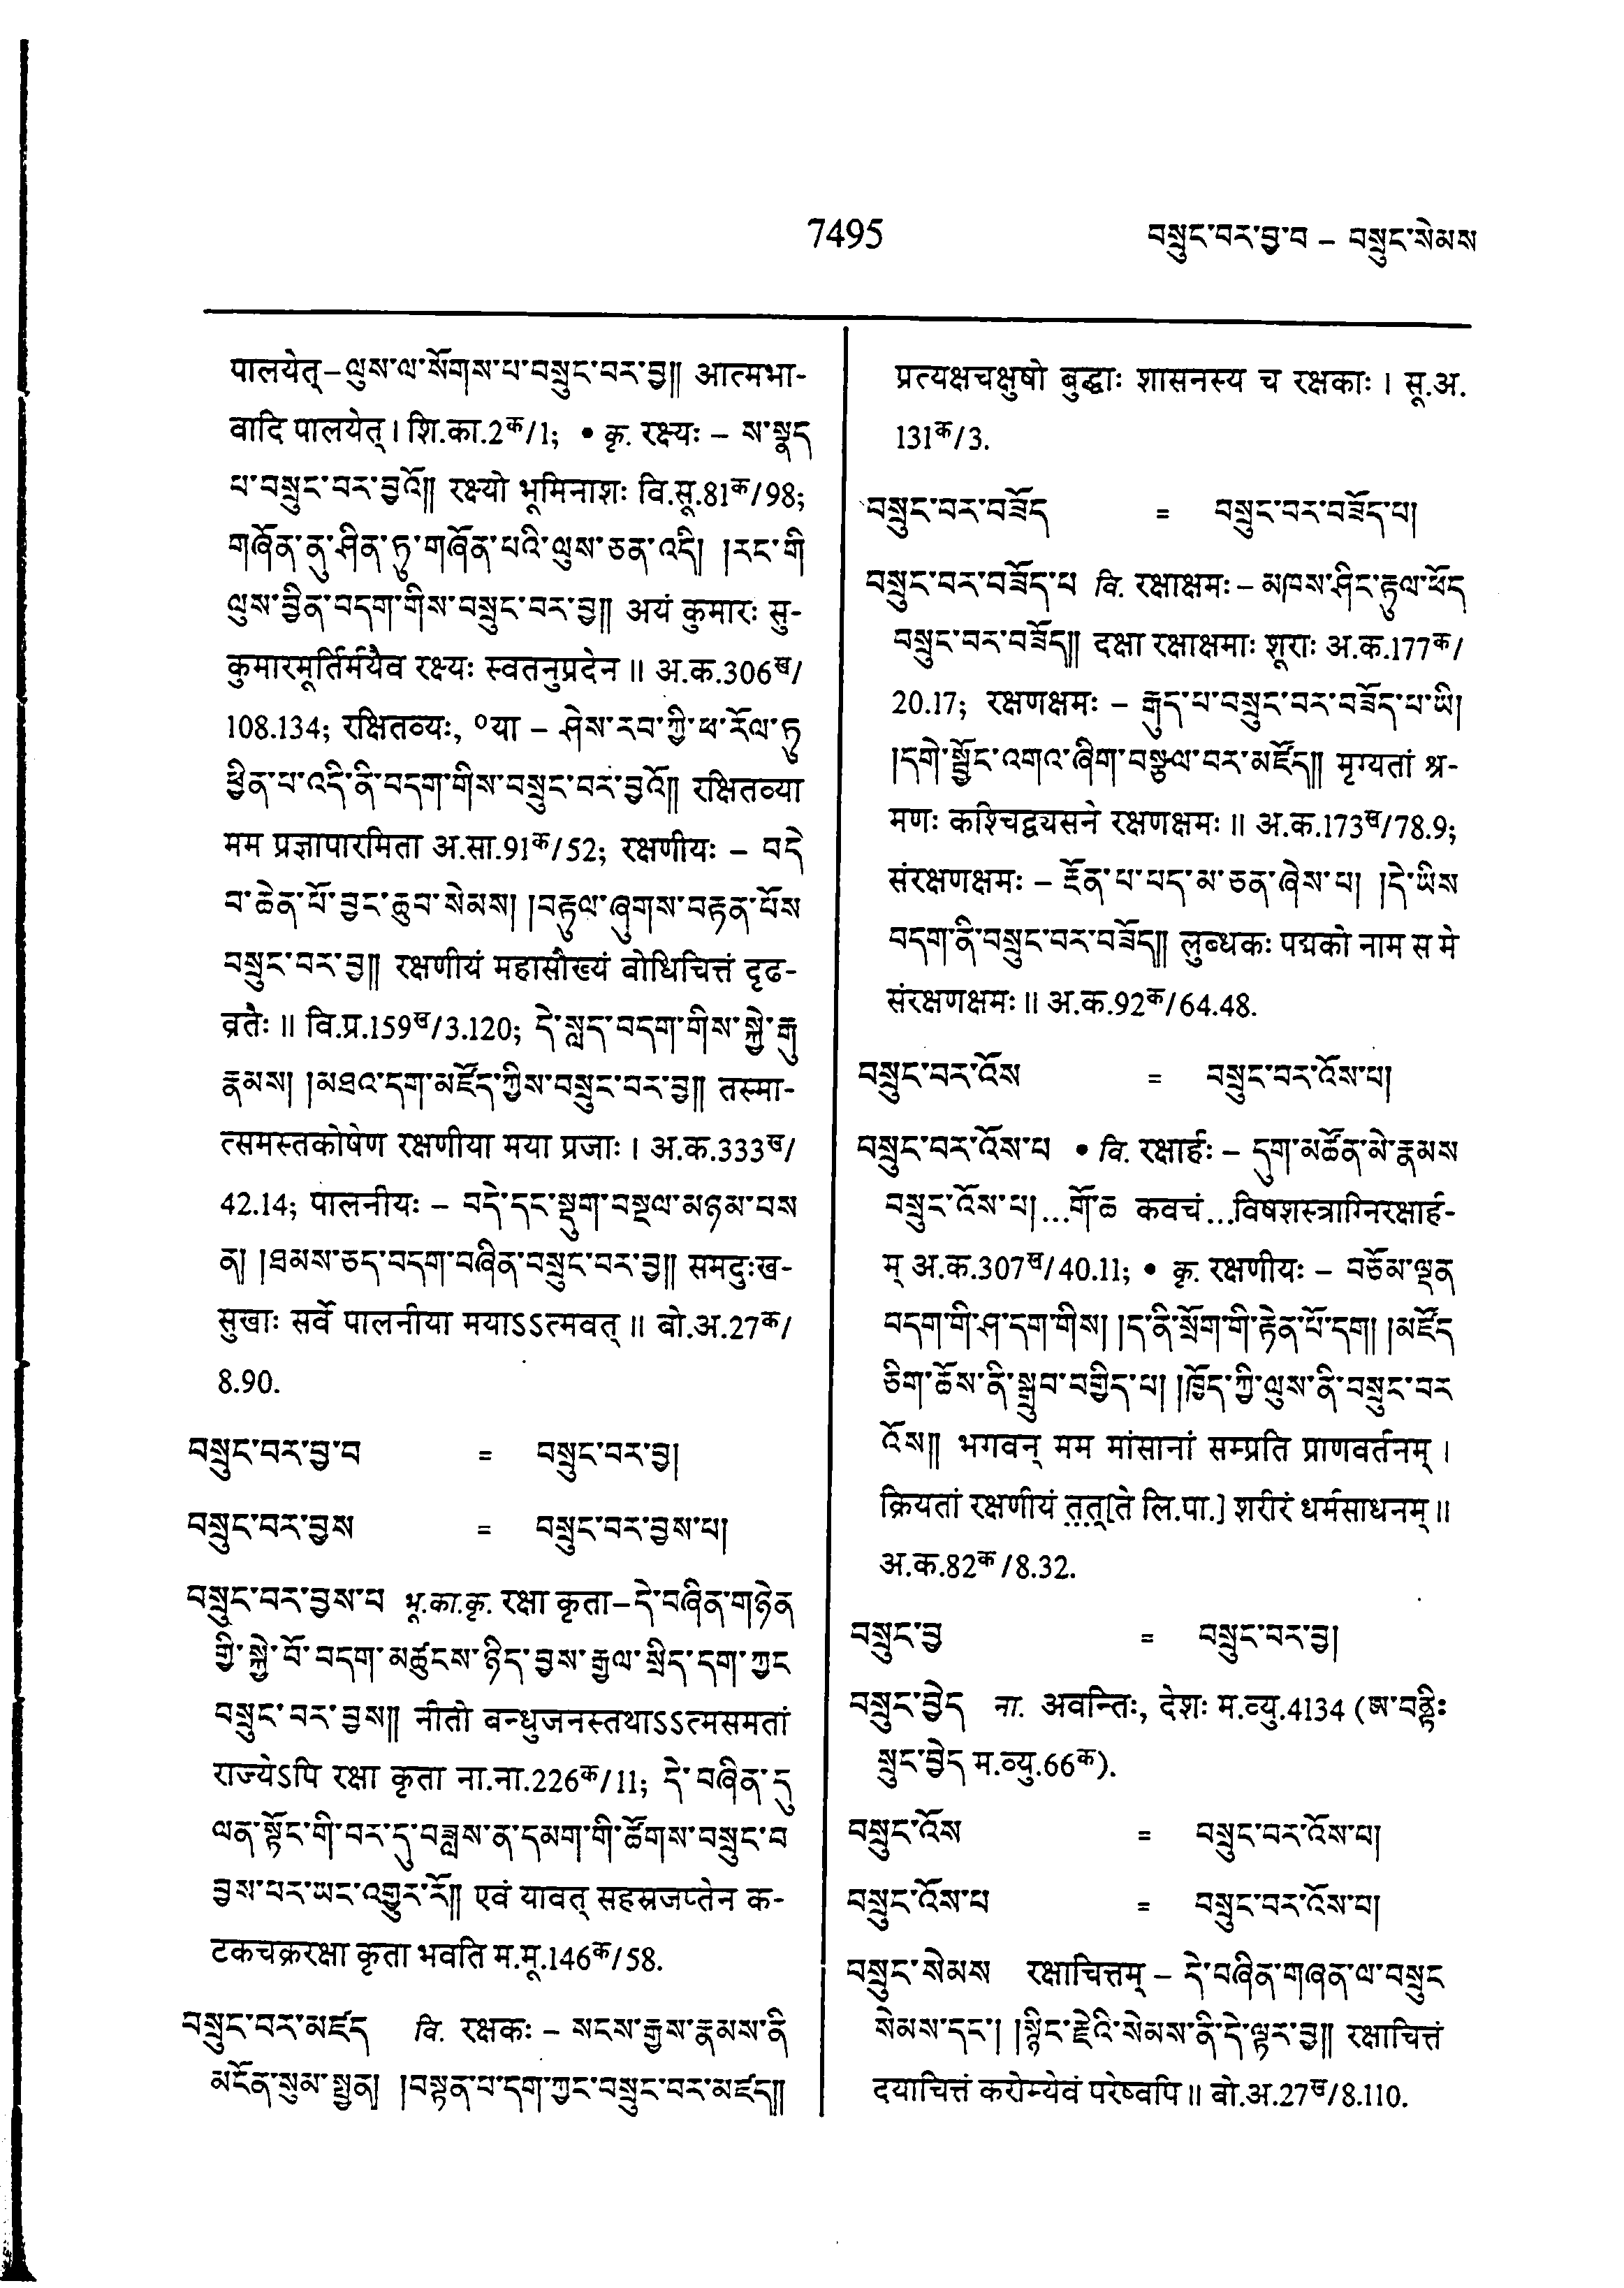 7495
བསྲུང་བར་བྱ་བ – བསྲུང་སེམས
पालयेत्–ལུས་ལ་སོགས་པ་བསྲུང་བར་བྱ།། आत्मभा-
वादि पालयेत् । शि.का.2क/1; • कृ. रक्ष्यः – ས་སྣད
པ་བསྲུང་བར་བྱའོ།། रक्ष्यो भूमिनाशः वि.सू.81क/98;
གཞོན་ནུ་ཤིན་ཏུ་གཞོན་པའི་ལུས་ཅན་འདི། །རང་གི
ལུས་བྱིན་བདག་གིས་བསྲུང་བར་བྱ།། अयं कुमारः सु-
कुमारमूर्तिर्मयैव रक्ष्यः स्वतनुप्रदेन ॥ अ.क.306ख/
108.134; रक्षितव्यः, ०या – ཤེས་རབ་ཀྱི་ཕ་རོལ་ཏུ
ཕྱིན་པ་འདི་ནི་བདག་གིས་བསྲུང་བར་བྱའོ།། रक्षितव्या
मम प्रज्ञापारमिता अ.सा.91क/52; रक्षणीयः – བདེ
བ་ཆེན་པོ་བྱང་ཆུབ་སེམས། །བརྟུལ་ཞུགས་བརྟན་པོས
བསྲུང་བར་བྱ།། रक्षणीयं महासौख्यं बोधिचित्तं दृढ-
व्रतैः ॥ वि.प्र.159ख/3.120; དེ་སླད་བདག་གིས་སྐྱེ་རྒུ
རྣམས། །མཐའ་དག་མཛོད་ཀྱིས་བསྲུང་བར་བྱ།། तस्मा-
त्समस्तकोषेण रक्षणीया मया प्रजाः । अ.क.333ख/
42.14; पालनीयः – བདེ་དང་སྡུག་བསྔལ་མཉམ་པས
ན། །ཐམས་ཅད་བདག་བཞིན་བསྲུང་བར་བྱ།། समदुःख-
सुखाः सर्वे पालनीया मयाऽऽत्मवत् ॥ बो.अ.27क/
8.90.
བསྲུང་བར་བྱ་བ = བསྲུང་བར་བྱ།
བསྲུང་བར་བྱས = བསྲུང་བར་བྱས་པ།
བསྲུང་བར་བྱས་པ भू.का.कृ. रक्षा कृता–དེ་བཞིན་གཉེན
གྱི་སྐྱེ་བོ་བདག་མཚུངས་ཉིད་བྱས་རྒྱལ་སྲིད་དག་ཀྱང
བསྲུང་བར་བྱས།། नीतो बन्धुजनस्तथाऽऽत्मसमतां
राज्येऽपि रक्षा कृता ना.ना.226क/11; དེ་བཞིན་དུ
ལན་སྟོང་གི་བར་དུ་བཟླས་ན་དམག་གི་ཚོགས་བསྲུང་བ
བྱས་པར་ཡང་འགྱུར་རོ།། एवं यावत् सहस्रजप्तेन क-
टकचक्ररक्षा कृता भवति म.मू.146क/58.
བསྲུང་བར་མཛད वि. रक्षकः – སངས་རྒྱས་རྣམས་ནི
མངོན་སུམ་སྤྱན། །བསྟན་པ་དག་ཀྱང་བསྲུང་བར་མཛད།།
प्रत्यक्षचक्षुषो बुद्धाः शासनस्य च रक्षकाः । सू.अ.
131क/3.
བསྲུང་བར་བཟོད = བསྲུང་བར་བཟོད་པ།
བསྲུང་བར་བཟོད་པ वि. रक्षाक्षमः – མཁས་ཤིང་རྟུལ་ཕོད
བསྲུང་བར་བཟོད།། दक्षा रक्षाक्षमाः शूराः अ.क.177क/
20.17; रक्षणक्षमः – རྒུད་པ་བསྲུང་བར་བཟོད་པ་ཡི།
།དགེ་སྦྱོང་འགའ་ཞིག་བཙྩལ་བར་མཛོད།། मृग्यतां श्र-
मणः कश्चिद्व्यसने रक्षणक्षमः ॥ अ.क.173ख/78.9;
संरक्षणक्षमः – རྔོན་པ་པད་མ་ཅན་ཞེས་པ། །དེ་ཡིས
བདག་ནི་བསྲུང་བར་བཟོད།། लुब्धकः पद्मको नाम स मे
संरक्षणक्षमः ॥ अ.क.92क/64.48.
བསྲུང་བར་འོས = བསྲུང་བར་འོས་པ།
བསྲུང་བར་འོས་པ • वि. रक्षार्हः – དུག་མཚོན་མེ་རྣམས
བསྲུང་འོས་པ།...གོ་ཆ कवचं...विषशस्त्राग्निरक्षार्ह-
म् अ.क.307ख/40.11; • कृ. रक्षणीयः – བཅོམ་ལྡན
བདག་གི་ཤ་དག་གིས། །ད་ནི་སྲོག་གི་རྟེན་པོ་དག། །མཛོད
ཅིག་ཆོས་ནི་སྒྲུབ་བགྱིད་པ། །ཁྱོད་ཀྱི་ལུས་ནི་བསྲུང་བར
འོས།། भगवन् मम मांसानां सम्प्रति प्राणवर्तनम् ।
क्रियतां रक्षणीयं तत्[ते लि.पा.] शरीरं धर्मसाधनम् ॥
अ.क.82क/8.32.
བསྲུང་བྱ = བསྲུང་བར་བྱ།
བསྲུང་བྱེད ना. अवन्तिः, देशः म.व्यु.4134 (ཨ་བནྟིཿ
སྲུང་བྱེད म.व्यु.66क).
བསྲུང་འོས = བསྲུང་བར་འོས་པ།
བསྲུང་འོས་པ = བསྲུང་བར་འོས་པ།
བསྲུང་སེམས रक्षाचित्तम् – དེ་བཞིན་གཞན་ལ་བསྲུང
སེམས་དང་། །སྙིང་རྗེའི་སེམས་ནི་དེ་ལྟར་བྱ།། रक्षाचित्तं
दयाचित्तं करोम्येवं परेष्वपि ॥ बो.अ.27ख/8.110.